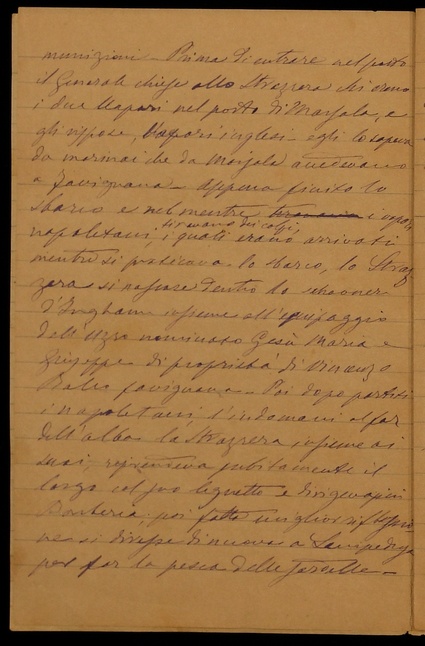 munizioni – Prima di entrare nel porto
il Generale chiese allo Strazzera chi erano
i due Vapori nel porto di Marsala, e
gli rispose, Vapori inglesi egli lo sapeva
da marinai che da Marsala andavano
a Favignana – Appena finito lo
sbarco e nel mentre i vapori
napoletani, tiravano dei colpi, i quali erano arrivati
mentre si praticava lo sbarco, lo Straz
zera si nascose dentro lo schooner
d'Ingham insieme all'equipaggio
dell' nominato Gesù Maria e
Giuseppe di proprietà di Vincenzo
favignanese – Poi dopo partiti
i napoletani, l'indomani al far
dell'alba lo Strazzera insieme ai
suoi, riprendeva subitamente il
largo col suo legnetto e dirigevasi in
poi fatto miglior
ne si diresse di nuovo a Lampedusa
per far la pesca delle